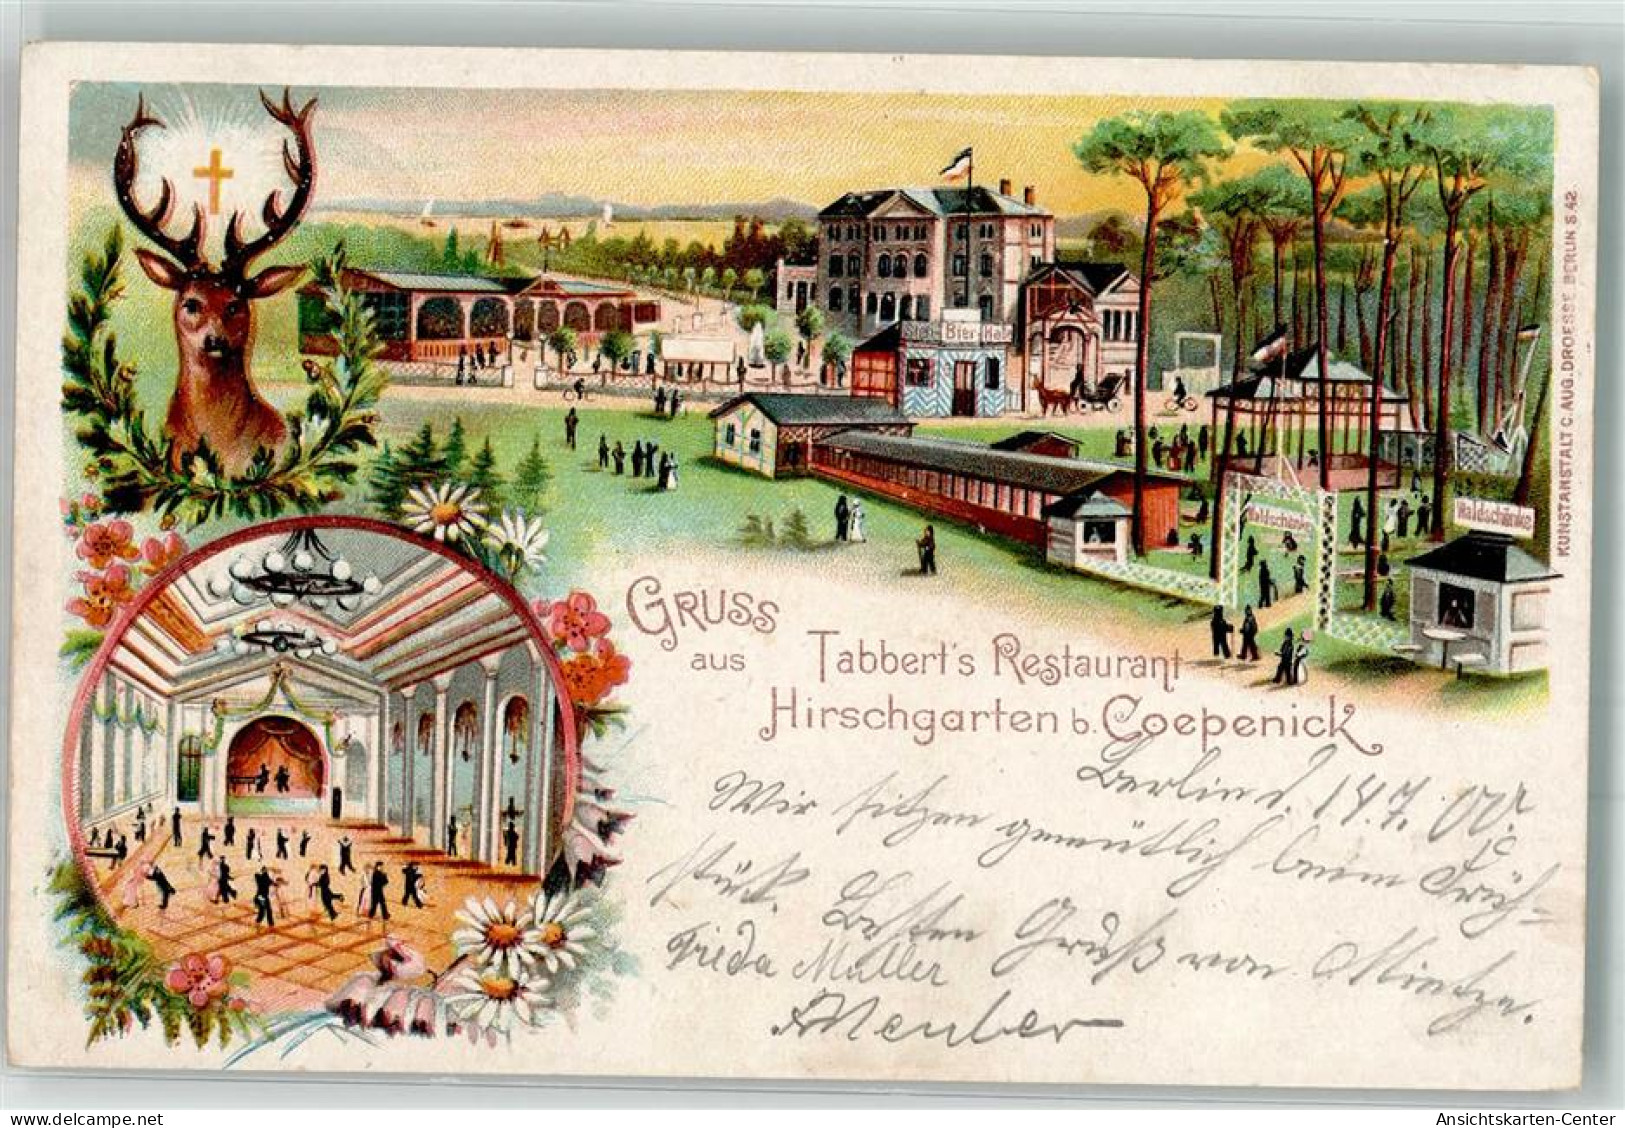 GRUSS
aus Tabbert's Restaurant
Hirschgarten b. Coepenick
Bier-Hall
Waldschänke
Waldschänke
KUNSTANSTALT C. AUG. DROESSE BERLIN S. 42.
Berlin d. 14.7.00.
Wir sitzen gemütlich beim Früh-
stück. Besten Gruß von Mietze.
Frieda Müller
oldthing.de
Ansichtskarten-Center